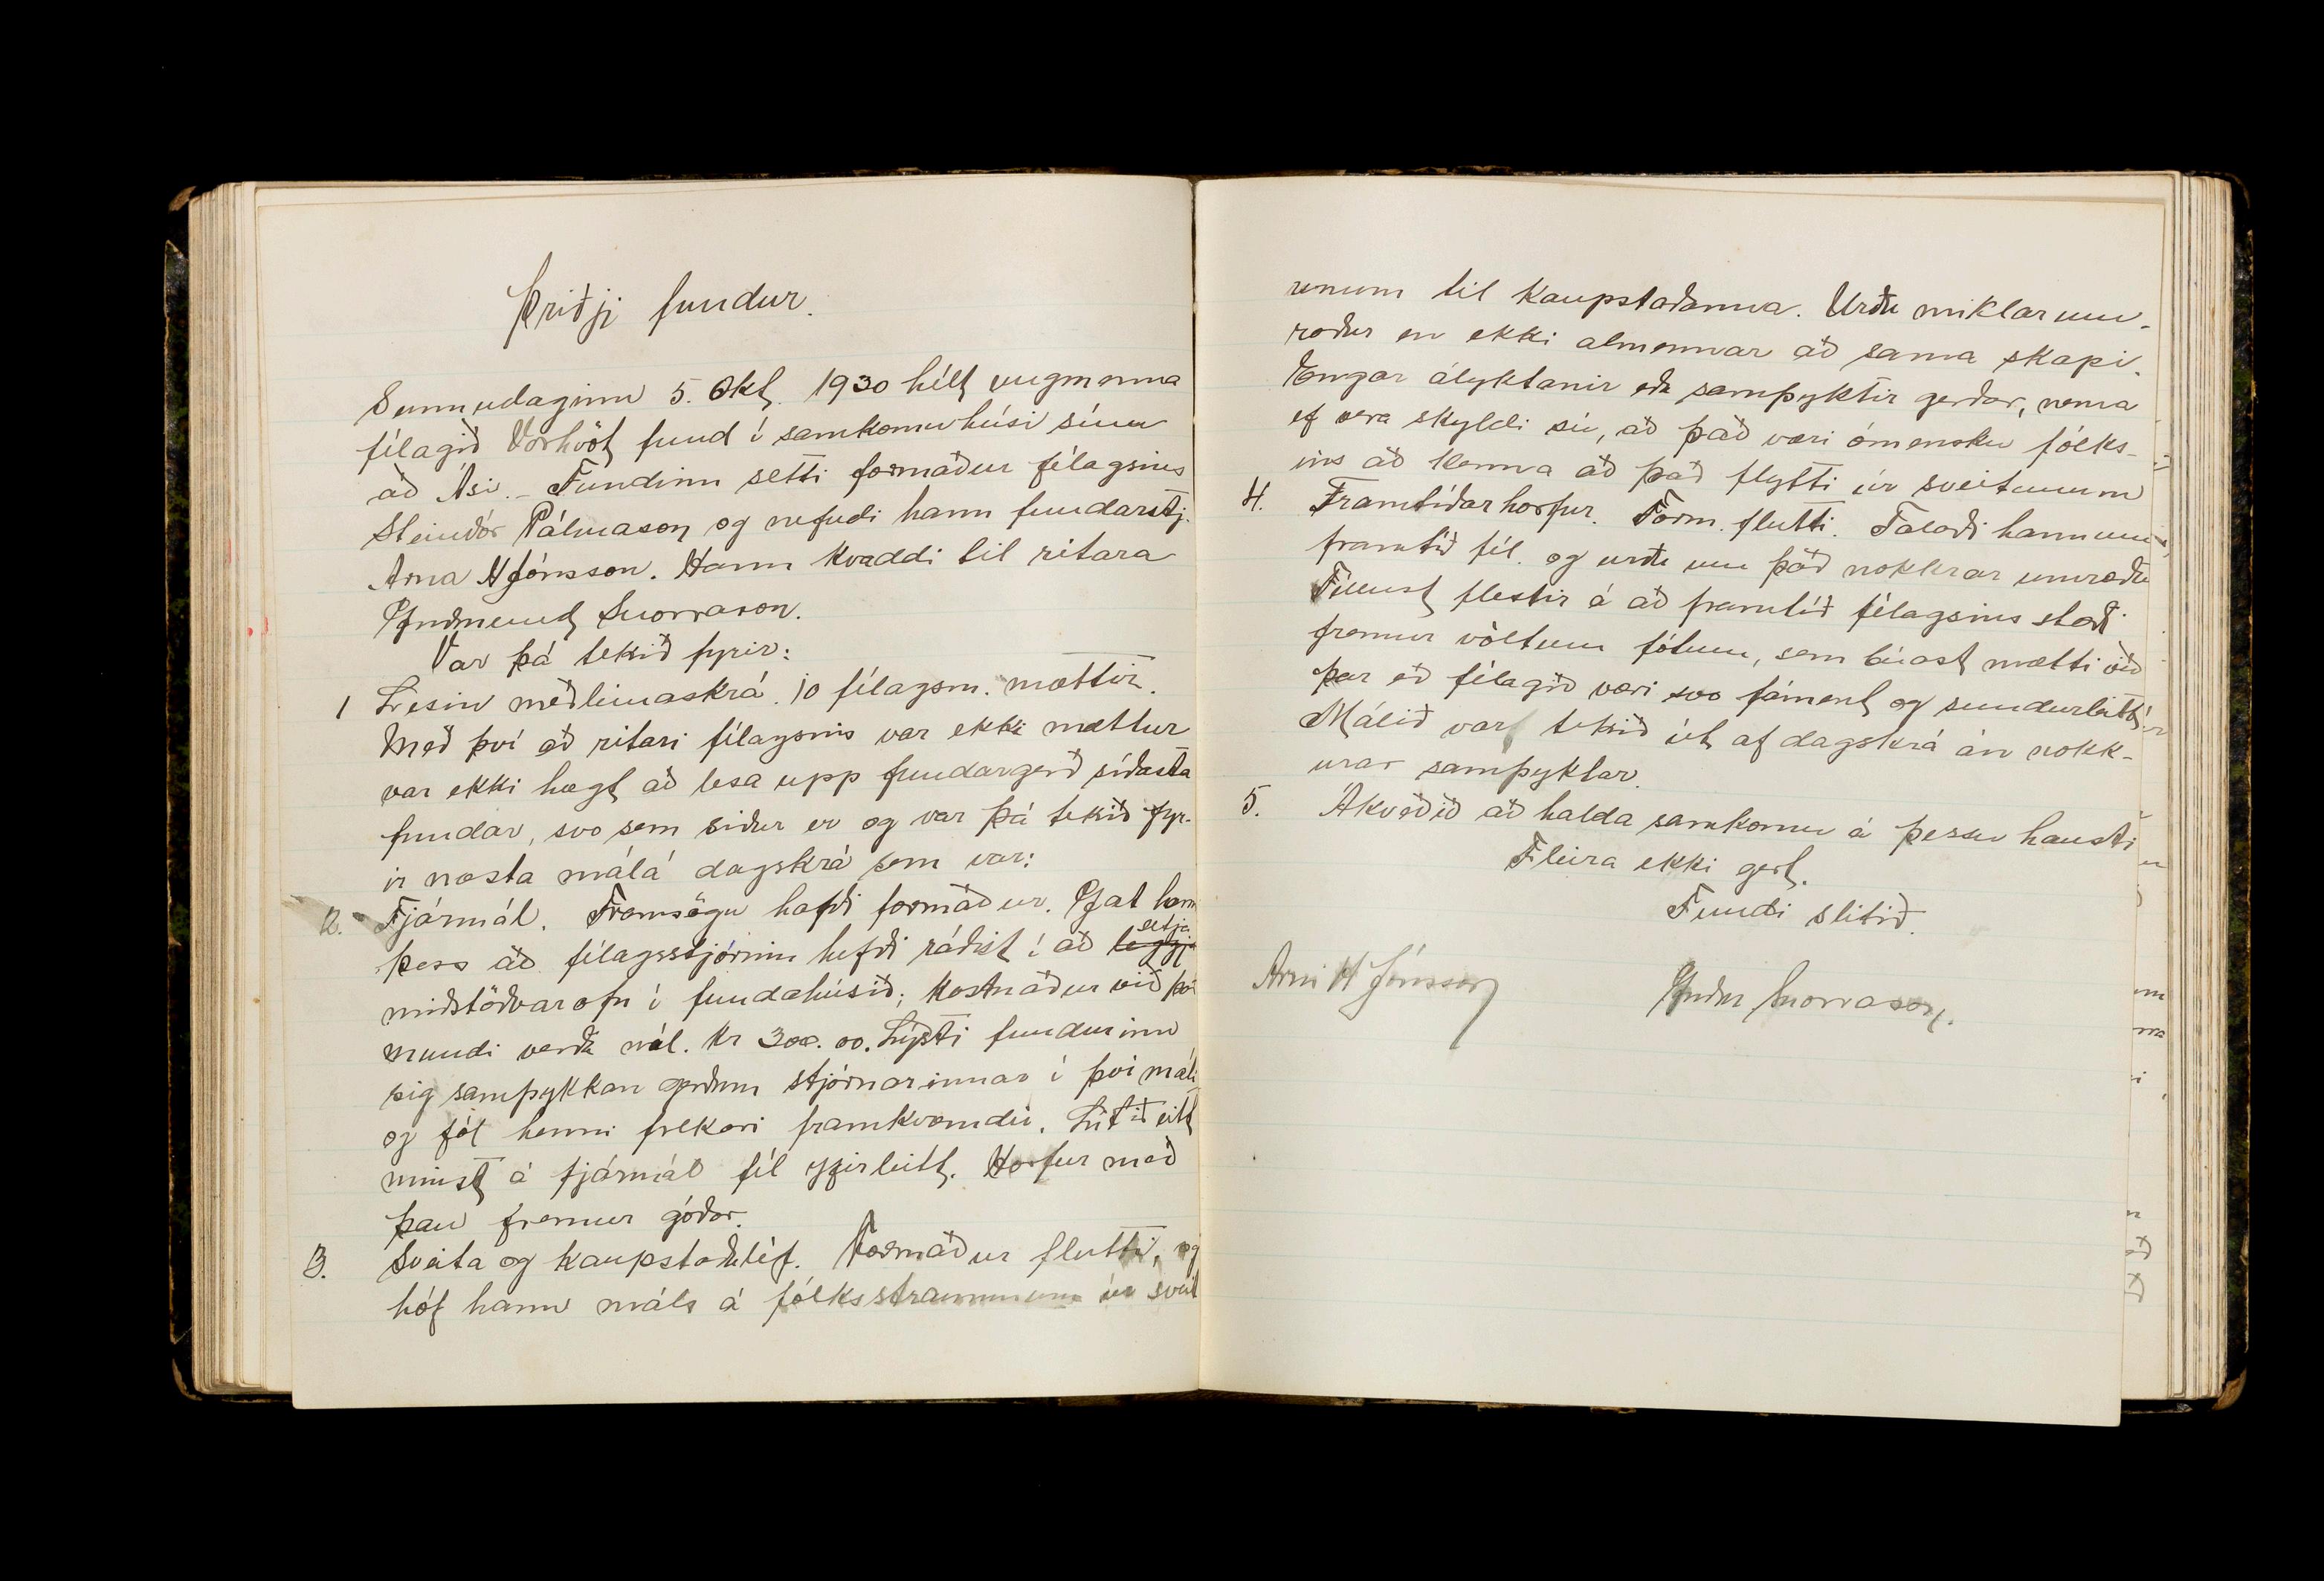 Þriðji fundur.
Sunnudaginn 5. Okt. 1930 hélt ungmenna
félagið Vorhvöt fund í samkomuhúsi sínu
að Ási. – Fundinn setti formaður félagsins
Steindór Pálmason og nefndi hann fundarstj.
Árna H Jónsson. Hann kvaddi til ritara
Guðmund Snorrason.
Var þá tekið fyrir:
1 Lesin meðlimaskrá. 10 félagsm. mættir.
Með því að ritari félagsins var ekki mættur
var ekki hægt að lesa upp fundargerð síðasta
fundar, svo sem siður er og var þá tekið fyr-
ir næsta mál á dagskrá sem var:
2. Fjármál. Framsögu hafði formaður. Gat hann
þess að félagsstjórnin hefði ráðist í að leggja setja
miðstöðvarofn í fundahúsið; kostnaður við það
mundi verða nál. kr 300.00. Lýsti fundurinn
sig samþykkan gerðum stjórnarinnar í því máli
og fól henni frekari framkvæmdir. Lítið eitt
minst á fjármál fél yfirleitt. Horfur með
þau fremur góðar.
3. Sveita og kaupstaðalíf. Formaður flutti, og
hóf hann máls á fólksstraumnum úr sveit
unum til kaupstaðanna. Urðu miklar um-
ræður en ekki almennar að sama skapi.
Engar ályktanir eða samþyktir gerðar, nema
ef vera skyldi sú, að það væri ómensku fólks-
ins að kenna að það flytti úr sveitunum
4. Framtíðarhorfur. Form. flutti. Talaði hann um
framtíð fél. og urðu um það nokkrar umræður
Fundust flestir á að framtíð félagsins stæði
fremur völtum fótum, sem búast mætti við
þar eð félagið væri svo fáment og sundurleitt.
Málið var tekið út af dagskrá án nokk-
urar samþyktar.
5. Ákveðið að halda samkomu á þessu hausti
Fleira ekki gert.
Fundi slitið.
Árni H Jónsson Guðm Snorrason.